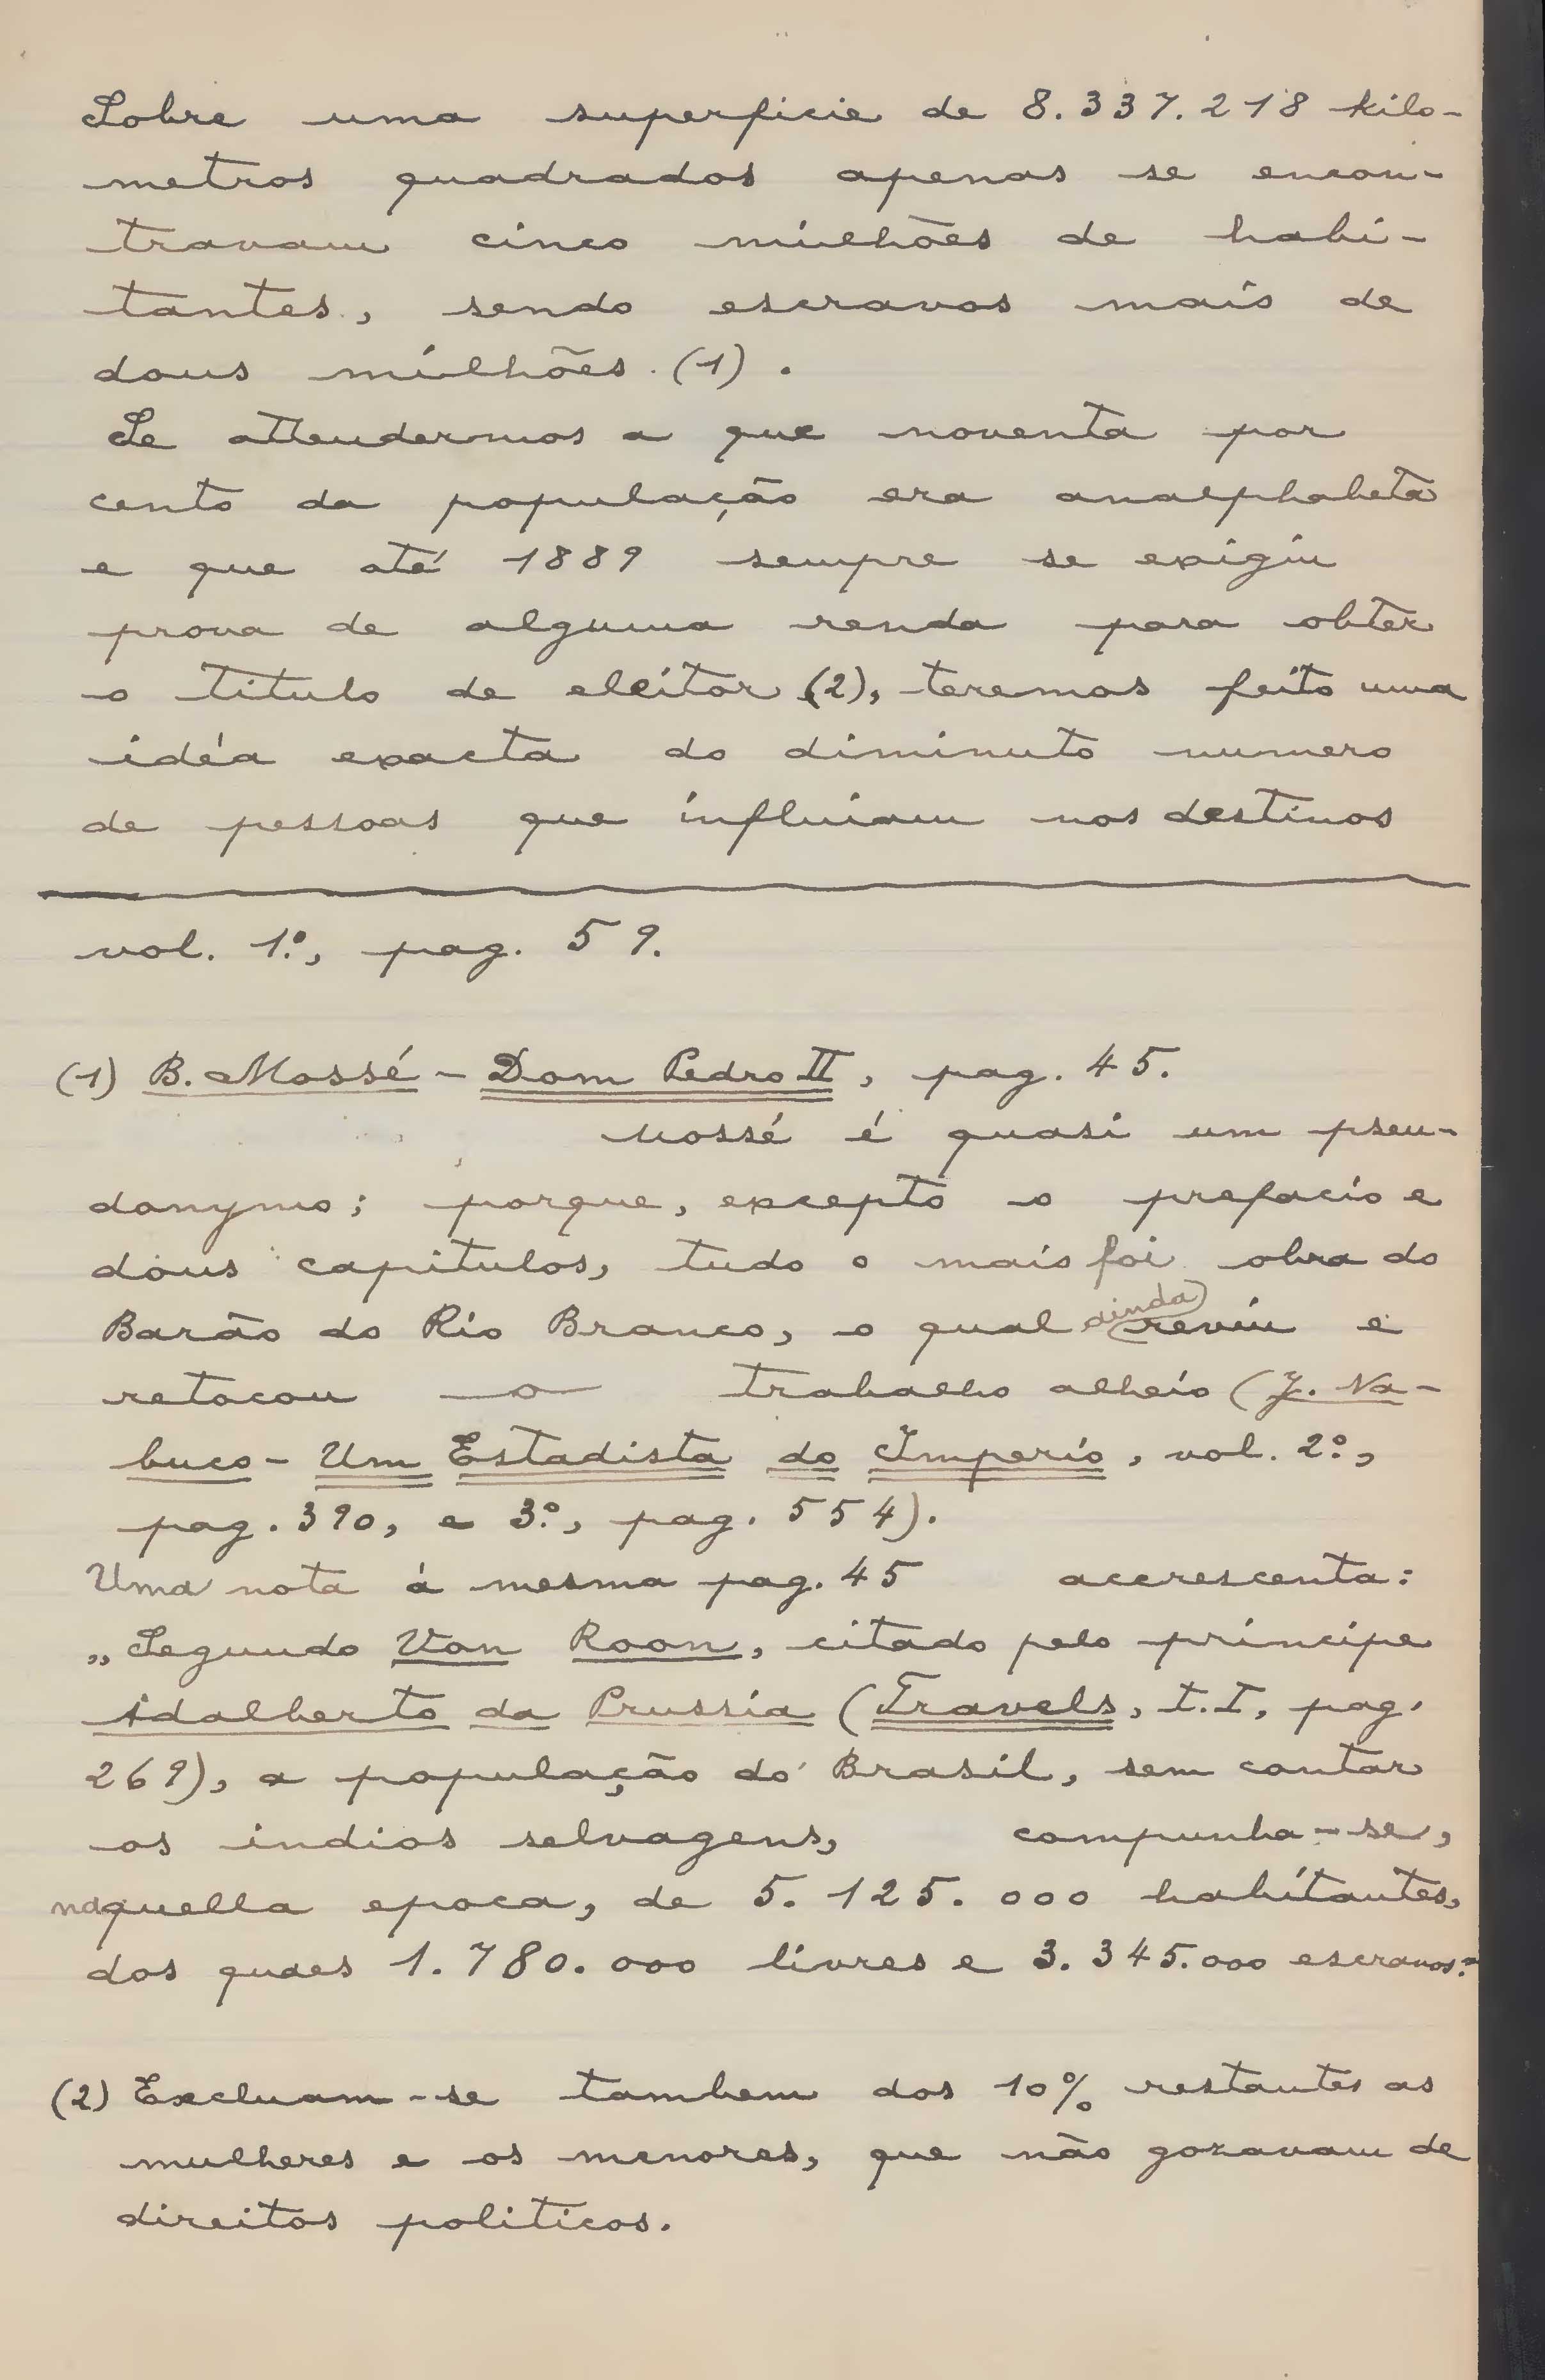 Sobre uma superficie de 8.337.218 kilo-
metros quadrados apenas se encon-
travam cinco milhões de habi-
tantes, sendo escravos mais de
dous milhões (1).
Se attendermos a que noventa por
cento da população era analphabeta
e que até 1889 sempre se exigiu
prova de alguma renda para obter
o titulo de eleitor (2), teremos feito uma
idéa exacta do diminuto numero
de pessoas que influiam nos destinos
vol. 1º, pag. 59.
(1) B. Mossé - Dom Pedro II, pag. 45.
Mossé é quasi um pseu-
donymo; porque, excepto o prefacio e
dous capitulos, tudo o mais foi obra do
Barão do Rio Branco, o qual ainda reviu e
retocou o trabalho alheio (J. Na-
buco - Um Estadista do Imperio, vol. 2º,
pag. 390, e 3º, pag. 554).
Uma nota á mesma pag. 45 accrescenta:
„Segundo Von Roon, citado pelo principe
Adalberto da Prussia (Travels, t. I, pag.
269), a população do Brasil, sem contar
os indios selvagens, compunha-se,
naquella epoca, de 5.125.000 habitantes,
dos quaes 1.780.000 livres e 3.345.000 escravos."
(2) Excluam-se tambem dos 10% restantes as
mulheres e os menores, que não gozavam de
direitos politicos.